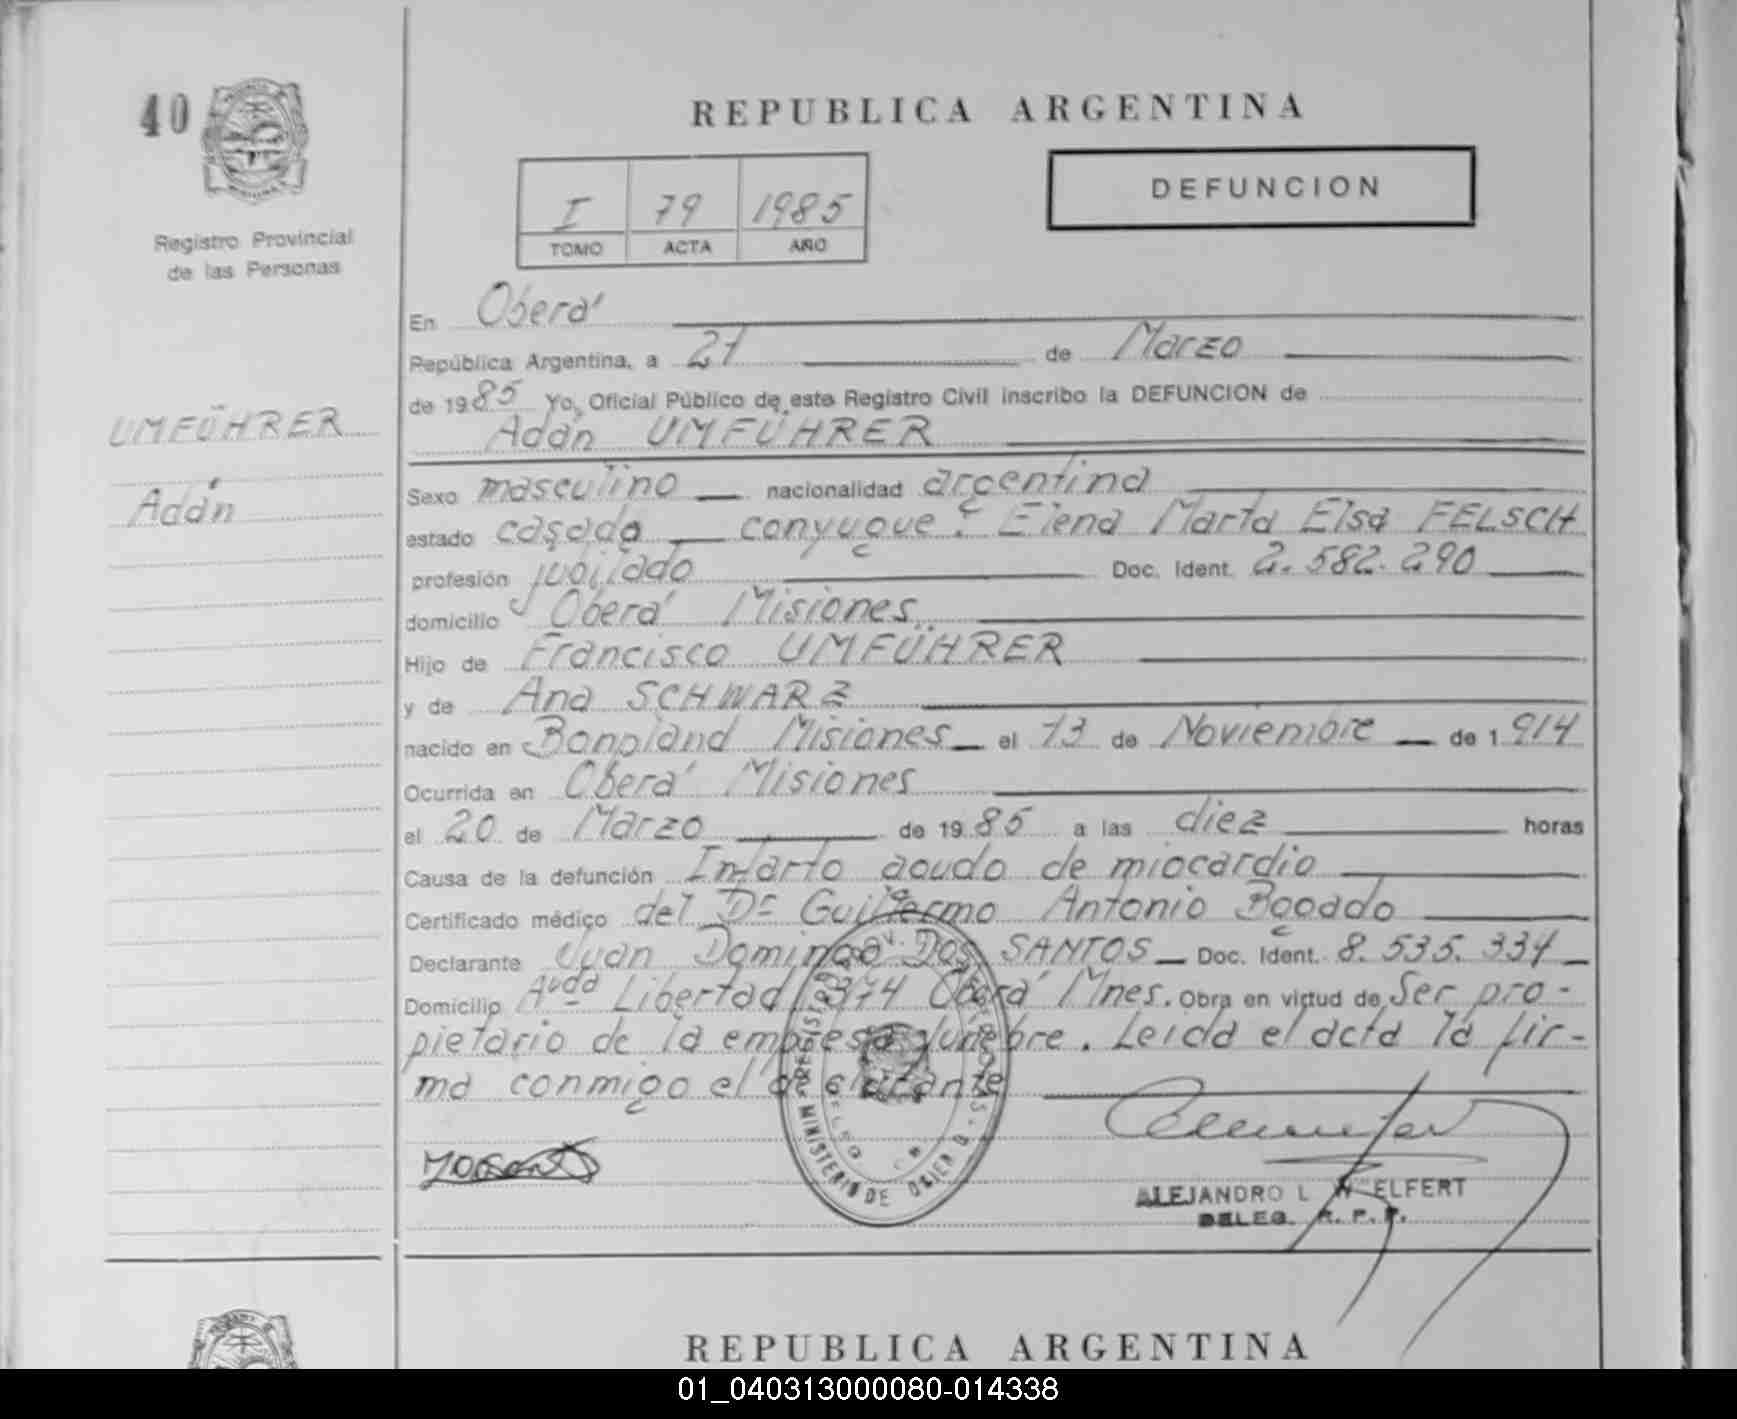 40
REPUBLICA ARGENTINA
I 79 1985
TOMO ACTA AÑO
DEFUNCION
Registro Provincial
de las Personas
UMFÜHRER
Adán
En Oberá
República Argentina, a 27 de Marzo
de 1985 Yo, Oficial Público de este Registro Civil inscribo la DEFUNCION de
Adán UMFÜHRER
Sexo masculino nacionalidad argentina
estado casado conyugue: Elena Marta Elsa FELSCH
profesión jubilado Doc. Ident. 2.582.290
domicilio Oberá Misiones
Hijo de Francisco UMFÜHRER
y de Ana SCHWARZ
nacido en Bonpland Misiones el 13 de Noviembre de 1914
Ocurrida en Oberá Misiones
el 20 de Marzo de 1985 a las diez horas
Causa de la defunción Infarto agudo de miocardio
Certificado médico del Dr Guillermo Antonio Bogado
Declarante Juan Domingo Dos SANTOS Doc. Ident. 8.535.334
Domicilio Avda Libertad 374 Oberá Mnes. Obra en virtud de Ser pro-
pietario de la empresa funebre. Leida el acta la fir-
ma conmigo el
MINISTERIO DE
ALEJANDRO L WELFERT
DELEG. R. P. P.
REPUBLICA ARGENTINA
01_040313000080-014338